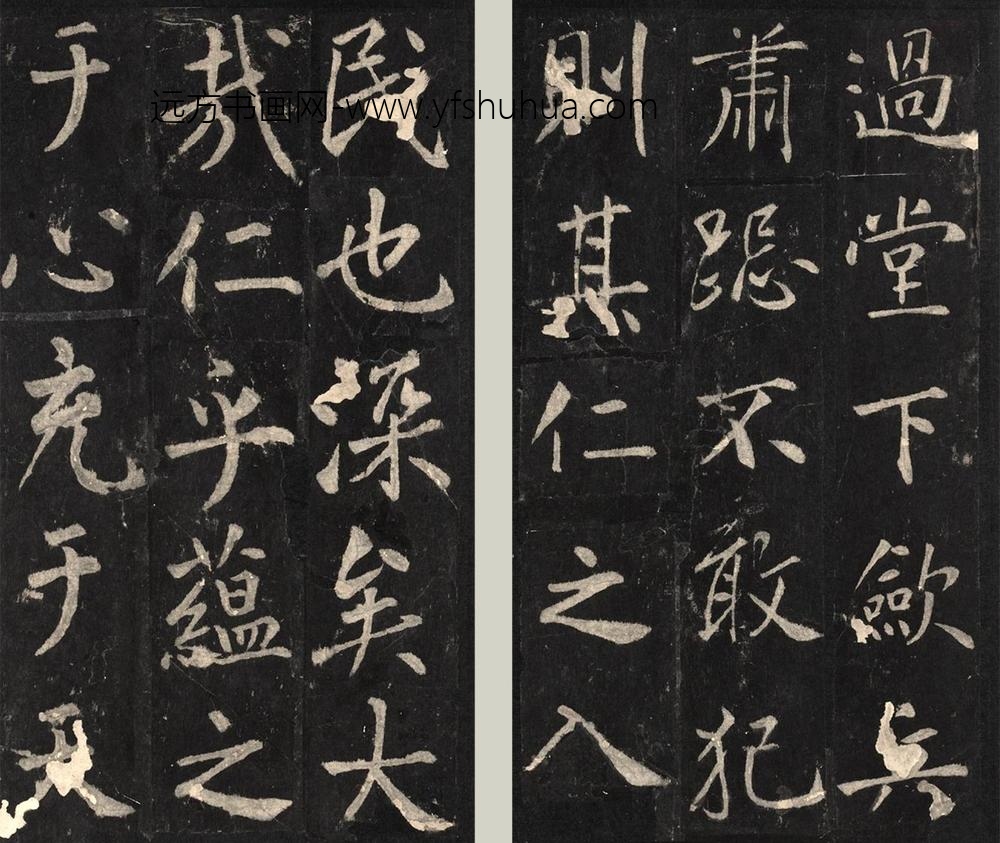 過堂下歛兵
蕭跽不敢犯
則其仁之入
民也深矣大
哉仁乎蘊之
于心充于天
远方书画网-www.yfshuhua.com